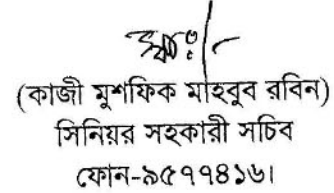 (কাজী মুশফিক মাহবুব রবিন)
সিনিয়র সহকারী সচিব
ফোন-৯৫৭৭৪১৬।